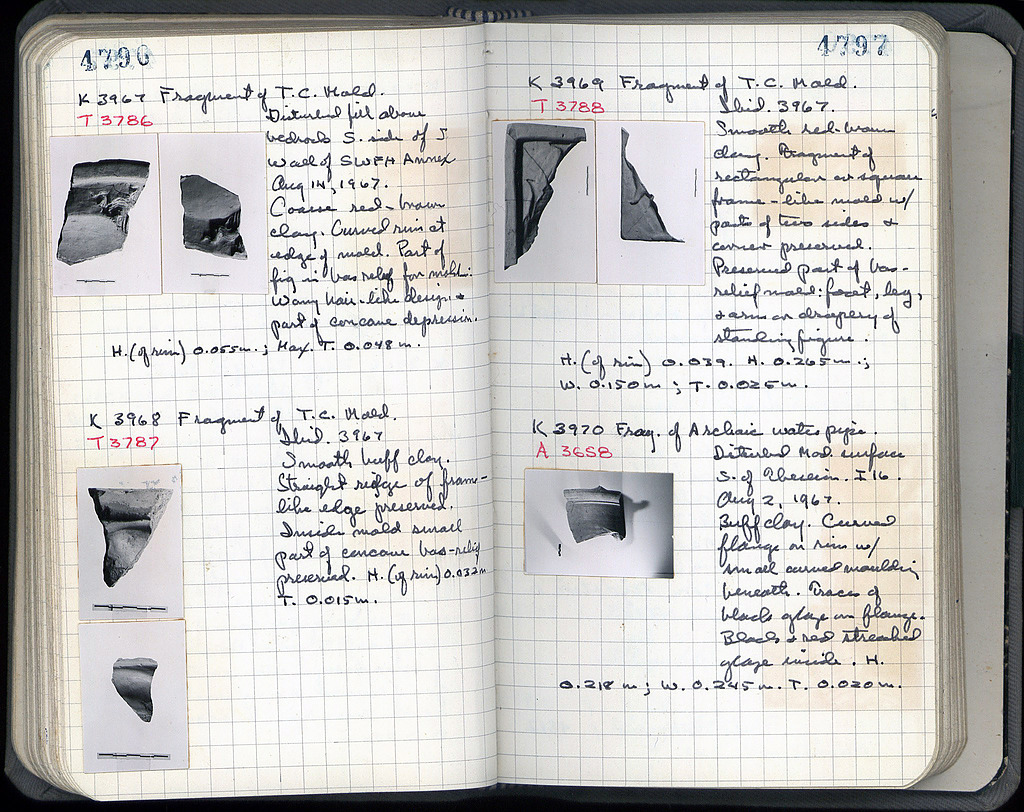 4796
K 3967 Fragment of T.C. Mold.
T 3786
Disturbed fill above
bedrock S. side of S
Wall of SWFH Annex
Aug 14, 1967.
Coarse red-brown
clay. Curved rim at
edge of mold. Part of
fig in bas relief for mold:
wavy hair-like design &
part of concave depression.
H. (of rim) 0.055m.; Max. T. 0.048 m.
K 3968 Fragment of T.C. Mold.
T 3787
Ibid. 3967
Smooth buff clay.
Straight ridge of frame-
like edge preserved.
Inside mold small
part of concave bas-relief
preserved. H. (of rim) 0.032m
T. 0.015m.
4797
K 3969 Fragment of T.C. Mold.
T 3788
Ibid. 3967.
Smooth red-brown
clay. Fragment of
rectangular or square
frame-like mold w/
parts of two sides &
corner preserved.
Preserved part of bas-
relief mold: foot, leg,
& arm or drapery of
standing figure.
H. (of rim) 0.039. H. 0.265m.;
W. 0.150m; T. 0.025m.
K 3970 Frag. of Archaic water pipe.
A 3658
Disturbed Mod. surface
S. of I 16.
Aug 2, 1967.
Buff clay. Curved
flange on rim w/
small curved moulding
beneath. Traces of
black glaze on flange.
Black & red streaked
glaze inside. H.
0.218 m; W. 0.245m. T. 0.020m.